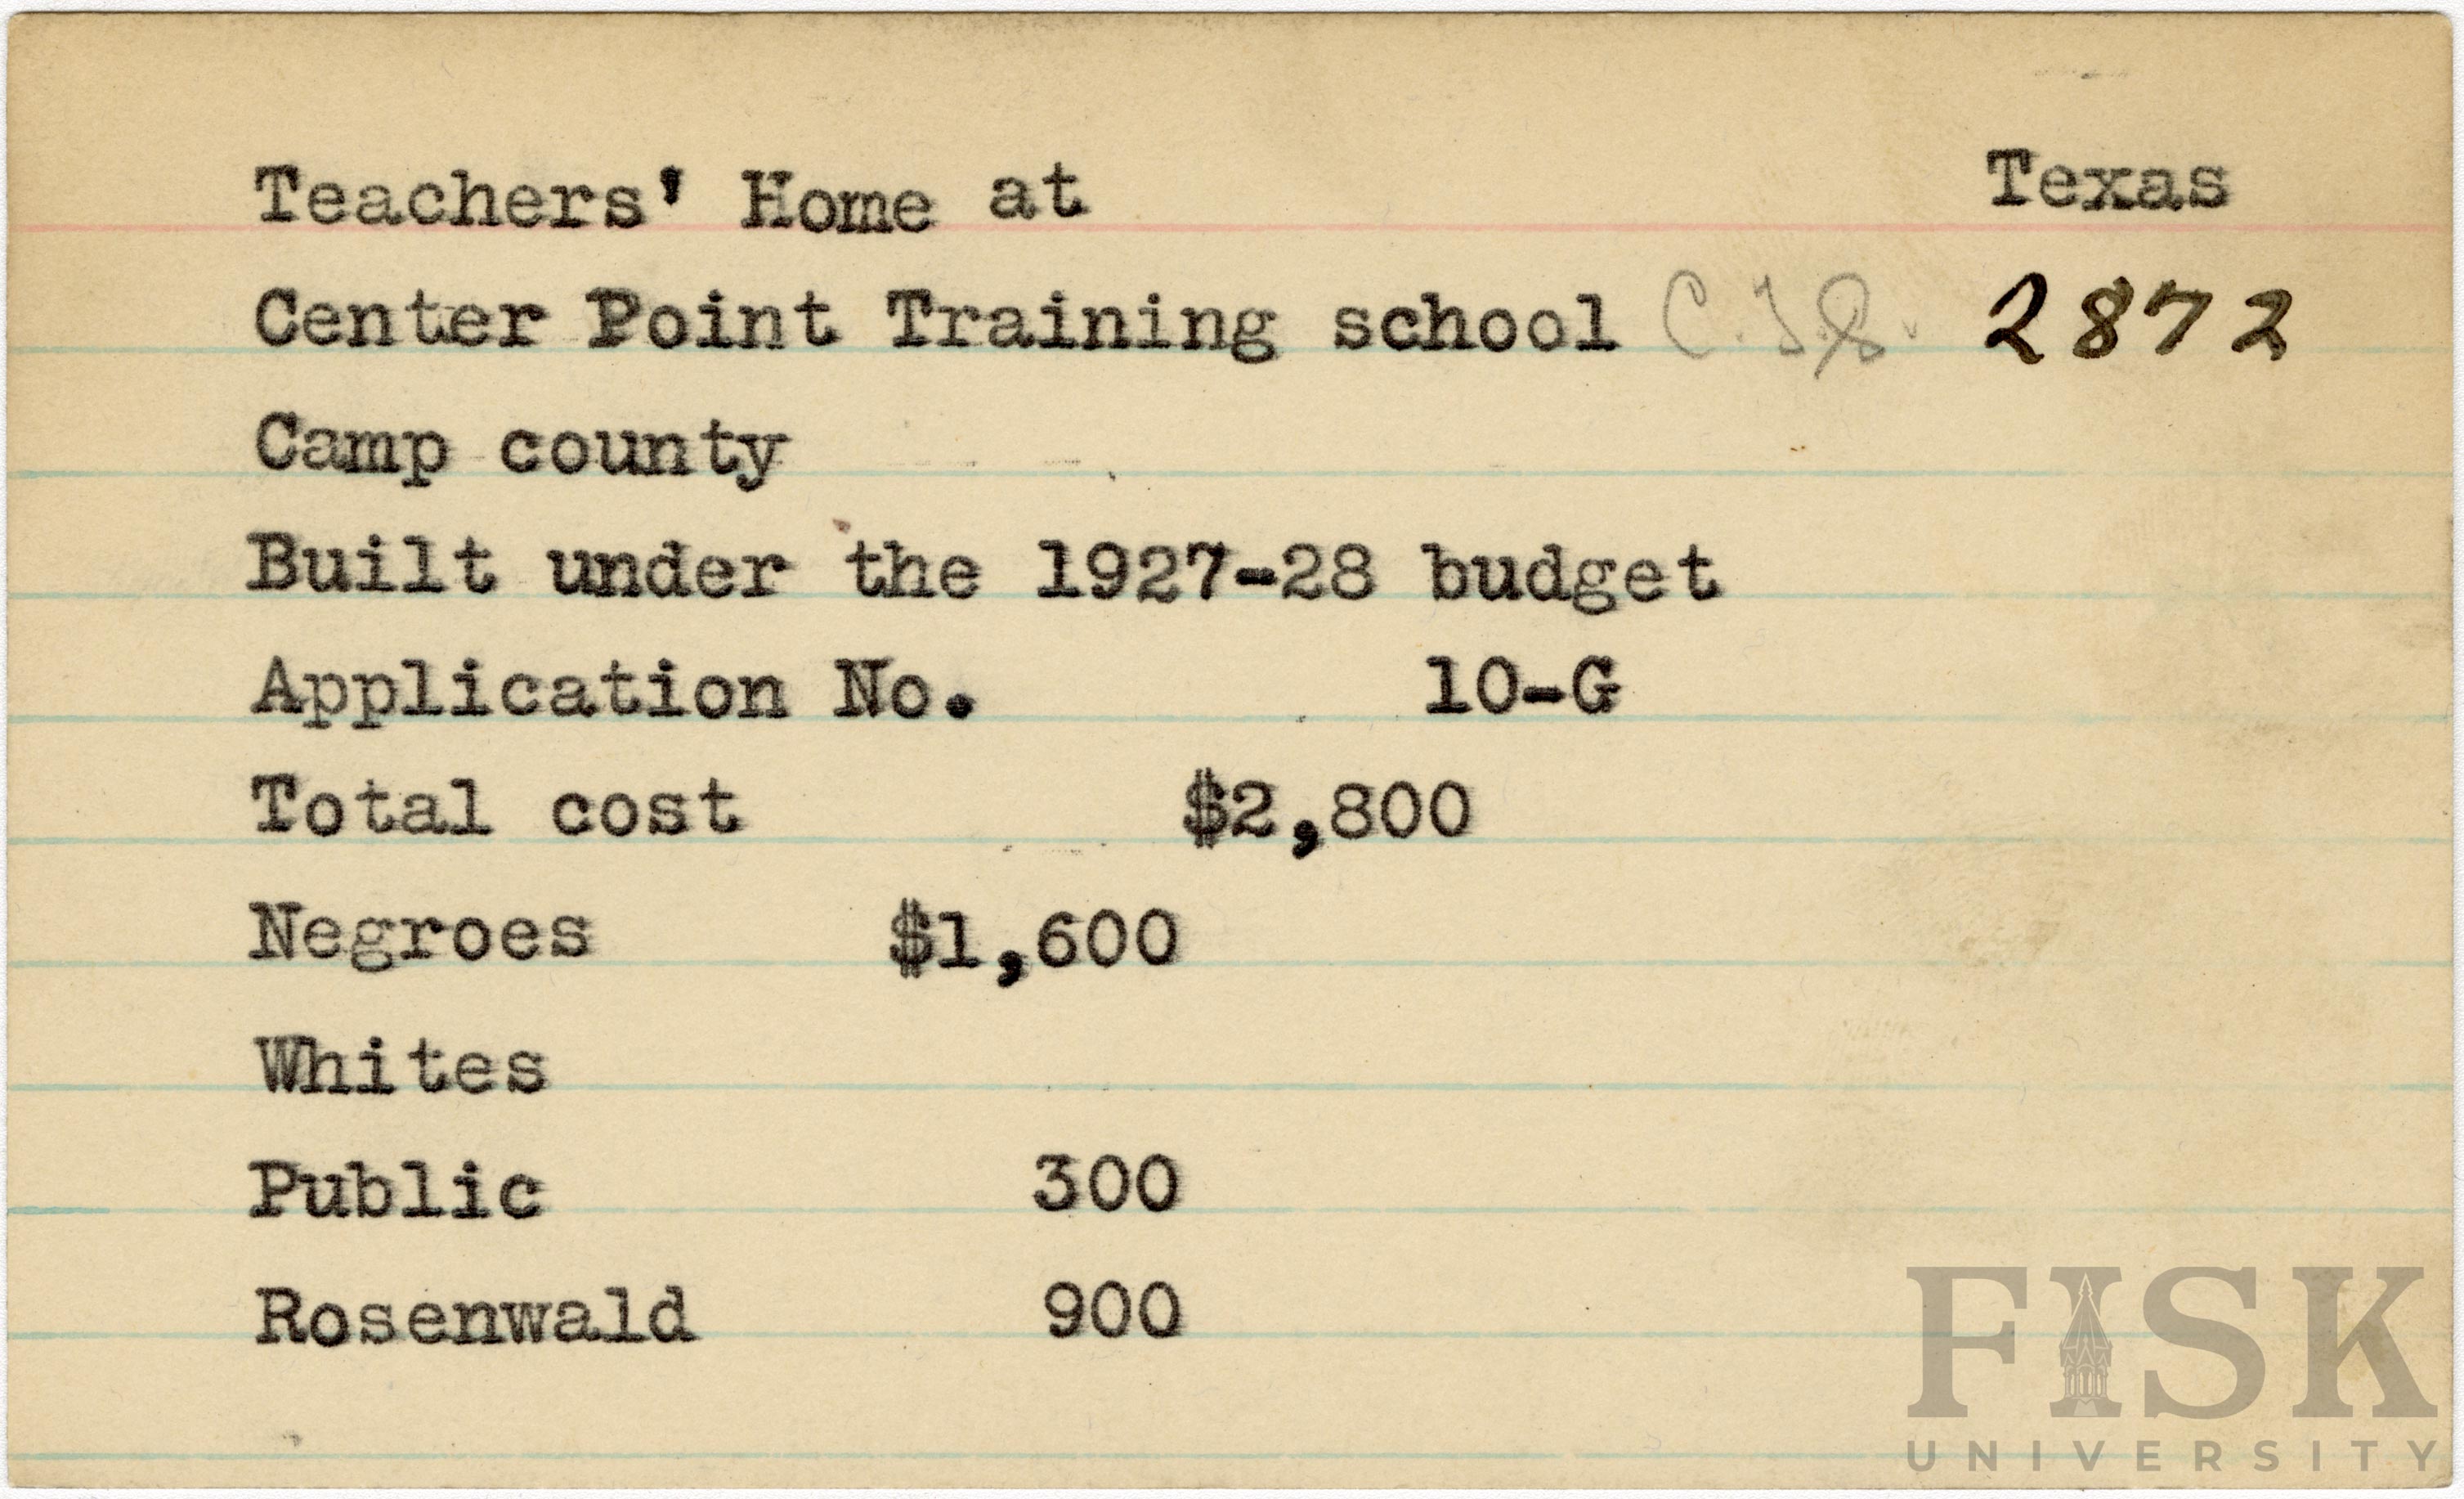 Teachers' Home at Texas
Center Point Training school C.T.S. 2872
Camp county
Built under the 1927-28 budget
Application No. 10-G
Total cost $2,800
Negroes $1,600
Whites
Public 300
Rosenwald 900
FISK
UNIVERSITY